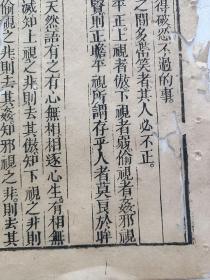 得破恐不過的事。
之間多帶笑者其人必不正。
平正上視者傲下視者弱偷視者姦邪視
賢則正瞻平視所謂存乎人者莫良於眸
天然語有之有心無相相逐心生有相無
滅知上視之非則去其傲知下視之非則
偷視之非則去其姦知邪視之非則去其